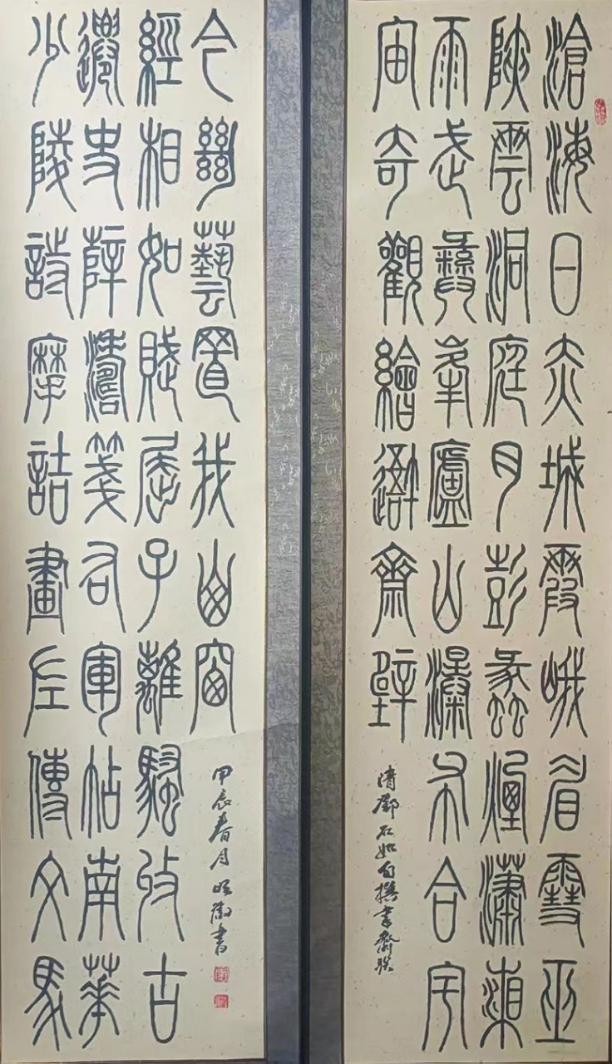 滄海日赤城霞峨眉雪巫
陜雲洞庭月彭蠡煙瀟湘
雨武彝峯廬山瀑布合宇
宙奇觀繪吾齋壁
清鄧石如自撰書齋聯
少陵詩摩詰畫左傳文馬
遷史薛濤箋右軍帖南華
經相如賦屈子離騷收古
今絕藝置我山窗
甲辰春月書